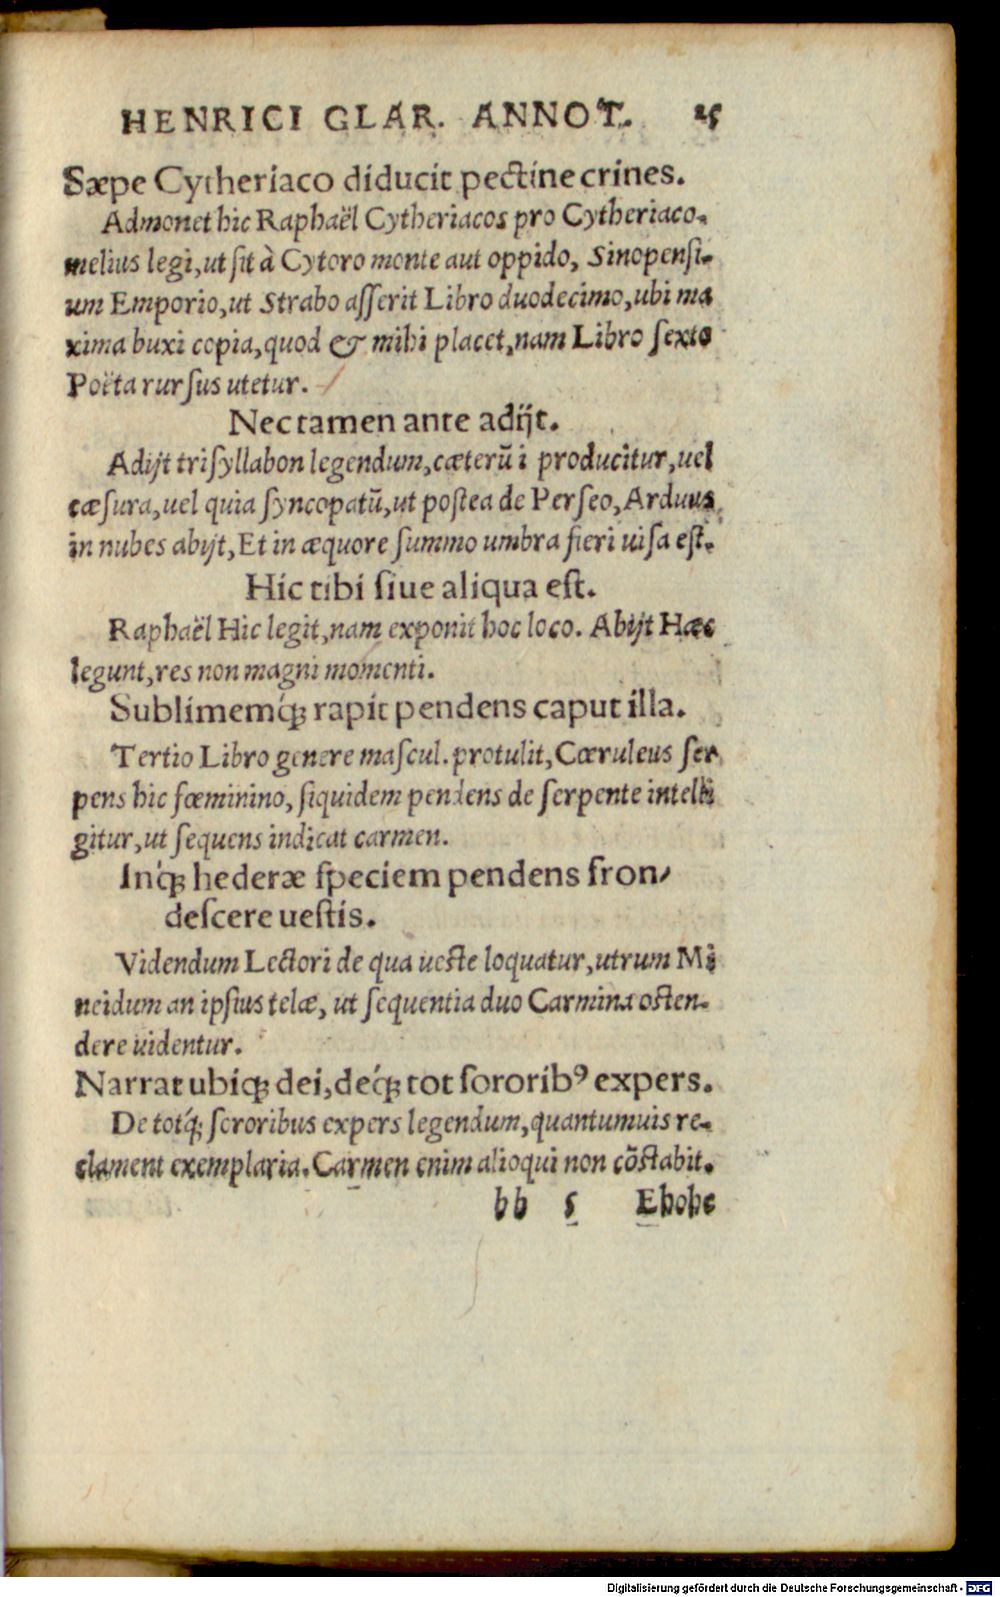 HENRICI GLAR. ANNOT. 25
Sæpe Cytheriaco diducit pectine crines.
Admonet hic Raphaël Cytheriacos pro Cytheriaco-
melius legi, ut sit à Cytoro monte aut oppido, Sinopensi-
um Emporio, ut Strabo asserit Libro duodecimo, ubi ma
xima buxi copia, quod & mihi placet, nam Libro sexto
Poëta rursus utetur.
Nec tamen ante adijt.
Adijt trisyllabon legendum, cæterũ i producitur, uel
cæsura, uel quia syncopatũ, ut postea de Perseo, Arduus
in nubes abijt, Et in æquore summo umbra fieri uisa est.
Hic tibi siue aliqua est.
Raphaël Hic legit, nam exponit hoc loco. Abijt Hæc
legunt, res non magni momenti.
Sublimemq́ꝫ rapit pendens caput illa.
Tertio Libro genere mascul. protulit, Cæruleus ser
pens hic fœminino, siquidem pendens de serpente intelli
gitur, ut sequens indicat carmen.
Inq́ꝫ hederæ speciem pendens fron-
descere uestis.
Videndum Lectori de qua ueste loquatur, utrum Mi
neidum an ipsius telæ, ut sequentia duo Carmina osten-
dere uidentur.
Narrat ubiqꝫ dei, deq́ꝫ tot sororibꝰ expers.
De totq́ꝫ sororibus expers legendum, quantumuis re-
clament exemplaria. Carmen enim alioqui non cõstabit.
bb 5 Ehohe